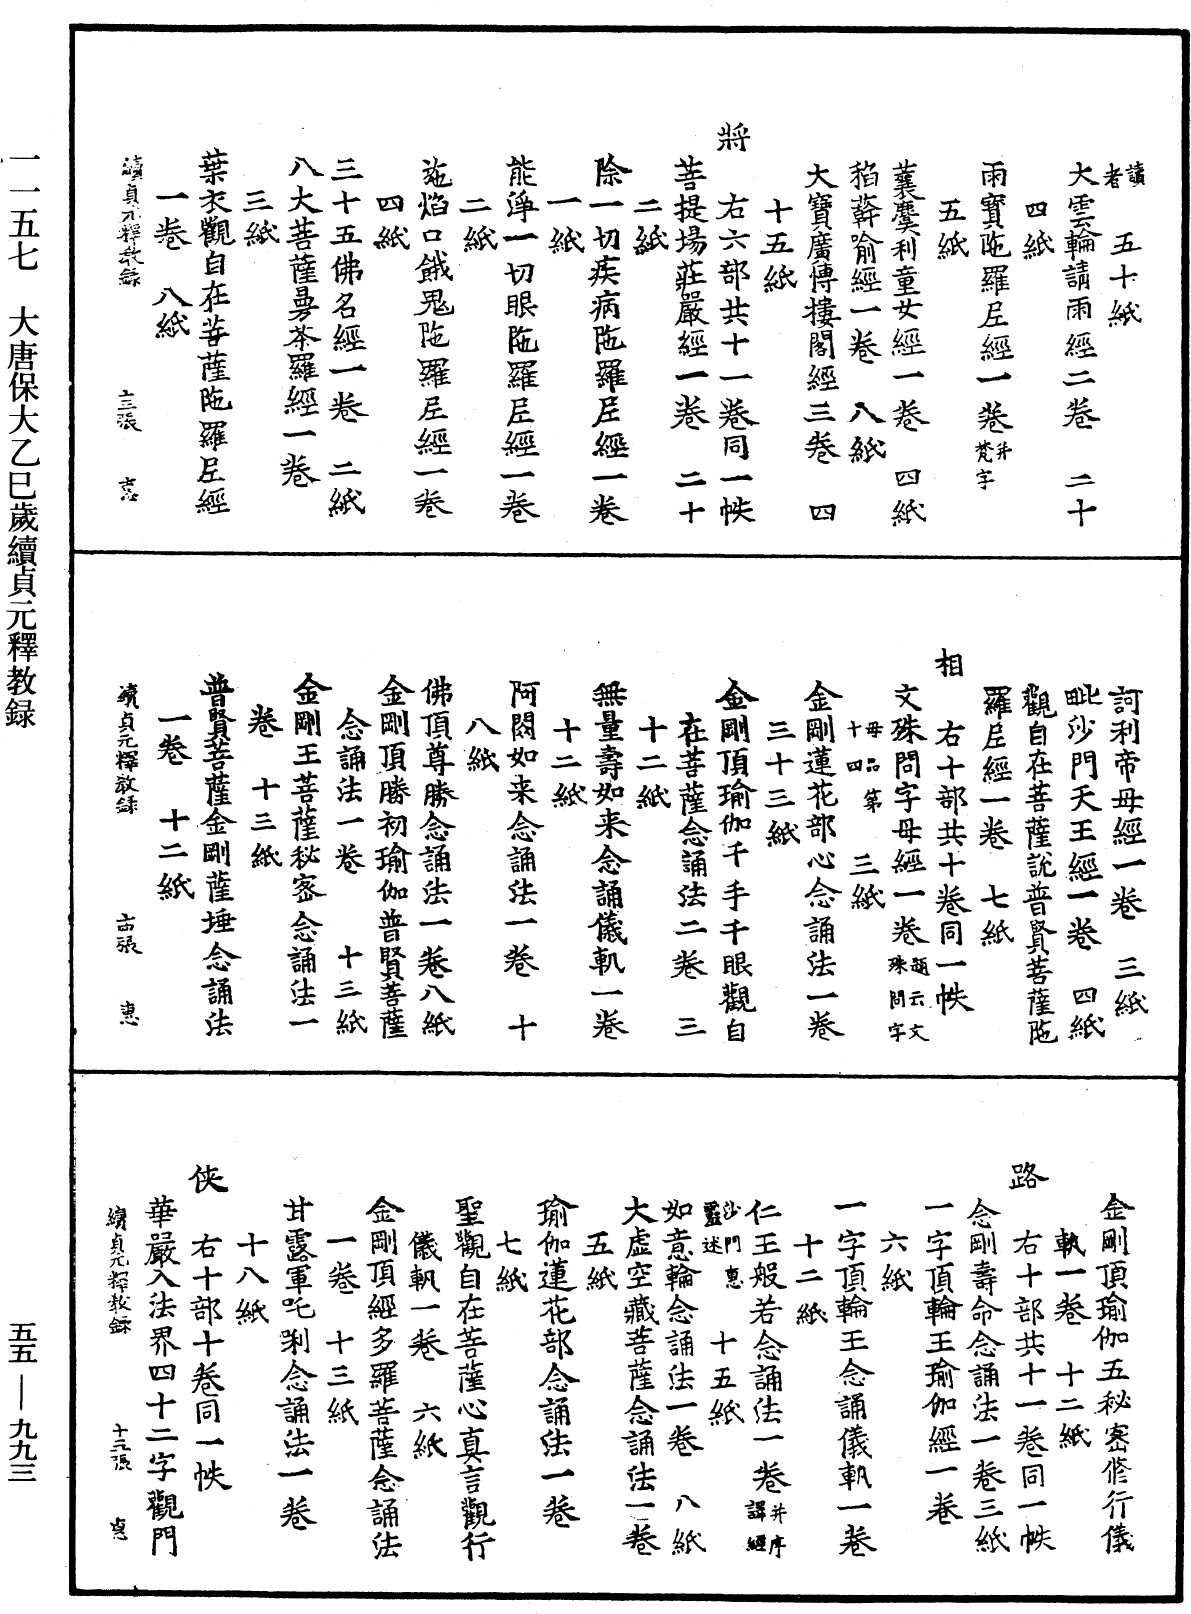 讀者　五十紙
大雲輪請雨經二卷　二十
四紙
雨寳陁羅𡰱經一卷并梵字
五紙
蘘麌利童女經一卷　四紙
稻簳喻經一卷　八紙
大寳廣博樓閣經三卷　四
十五紙
將　右六部共十一卷同一帙
菩提場莊嚴經一卷　二十
二紙
除一切疾病陁羅𡰱經一卷
一紙
能淨一切眼陁羅𡰱經一卷
二紙
施焰口餓鬼陁羅𡰱經一卷
四紙
三十五佛名經一卷　二紙
八大菩薩曼茶羅經一卷
三紙
葉衣觀自在菩薩陁羅𡰱經
一卷　八紙
續貞元釋教錄　十三張
訶利帝母經一卷　三紙
毗沙門天王經一卷　四紙
觀自在菩薩說普賢菩薩陁
羅𡰱經一卷　七紙
相　右十部共十卷同一帙
文殊問字母經一卷題云文殊問字
母品第十四　三紙
金剛蓮花部心念誦法一卷
三十三紙
金剛頂瑜伽千手千眼觀自
在菩薩念誦法二卷　三
十二紙
無量壽如来念誦儀軌一卷
十二紙
阿閦如来念誦法一卷　十
八紙
佛頂尊勝念誦法一卷八紙
金剛頂勝初瑜伽普賢菩薩
念誦法一卷　十三紙
金剛王菩薩秘密念誦法一
卷　十三紙
普賢菩薩金剛薩埵念誦法
一卷　十二紙
續貞元釋教錄　十四張　惠
金剛頂瑜伽五秘密修行儀
軌一卷　十二紙
路　右十部共十一卷同一帙
念剛壽命念誦法一卷三紙
一字頂輪王瑜伽經一卷
六紙
一字頂輪王念誦儀軌一卷
十二紙
仁王般若念誦法一卷并序譯經
沙門惠靈述　十五紙
如意輪念誦法一卷　八紙
大虛空藏菩薩念誦法一卷
五紙
瑜伽蓮花部念誦法一卷
七紙
聖觀自在菩薩心真言觀行
儀軌一卷　六紙
金剛頂經多羅菩薩念誦法
一卷　十三紙
甘露軍吒利念誦法一卷
十八紙
俠　右十部十卷同一帙
華嚴入法界四十二字觀門
續貞元釋教錄　十五張
一一五七　大唐保大乙巳歲續貞元釋教録
五五—九九三